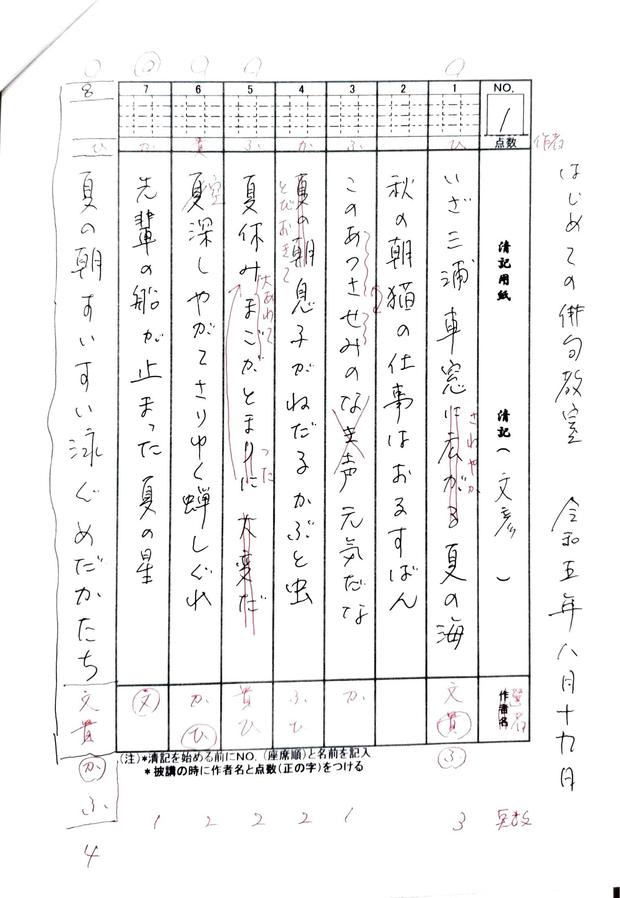 はじめての俳句教室 令和五年八月十九日
作者
NO. 1 点数
清記用紙 清記(文彦)
作者名
選名
点数
1 ひ
いざ三浦車窓に広がる夏の海
さわやか
文 貴 ふ
3
2
秋の朝猫の仕事はおるすばん
3 ふ
このあつさせみのなき声元気だな
か
1
4 か
夏の朝息子がねだるかぶと虫
とびおきて
ふ ひ
2
5 ふ
夏休みまごがとまりに大変だ
大あわて
った
貴 ひ
2
6 貴
夏深しやがてさりゆく蝉しぐれ
空
か ひ
2
7 か
先輩の船が止まった夏の星
文
1
8 ひ
夏の朝すいすい泳ぐめだかたち
文 貴 か ふ
4
(注)*清記を始める前にNO.(座席順)と名前を記入
*披講の時に作者名と点数(正の字)をつける